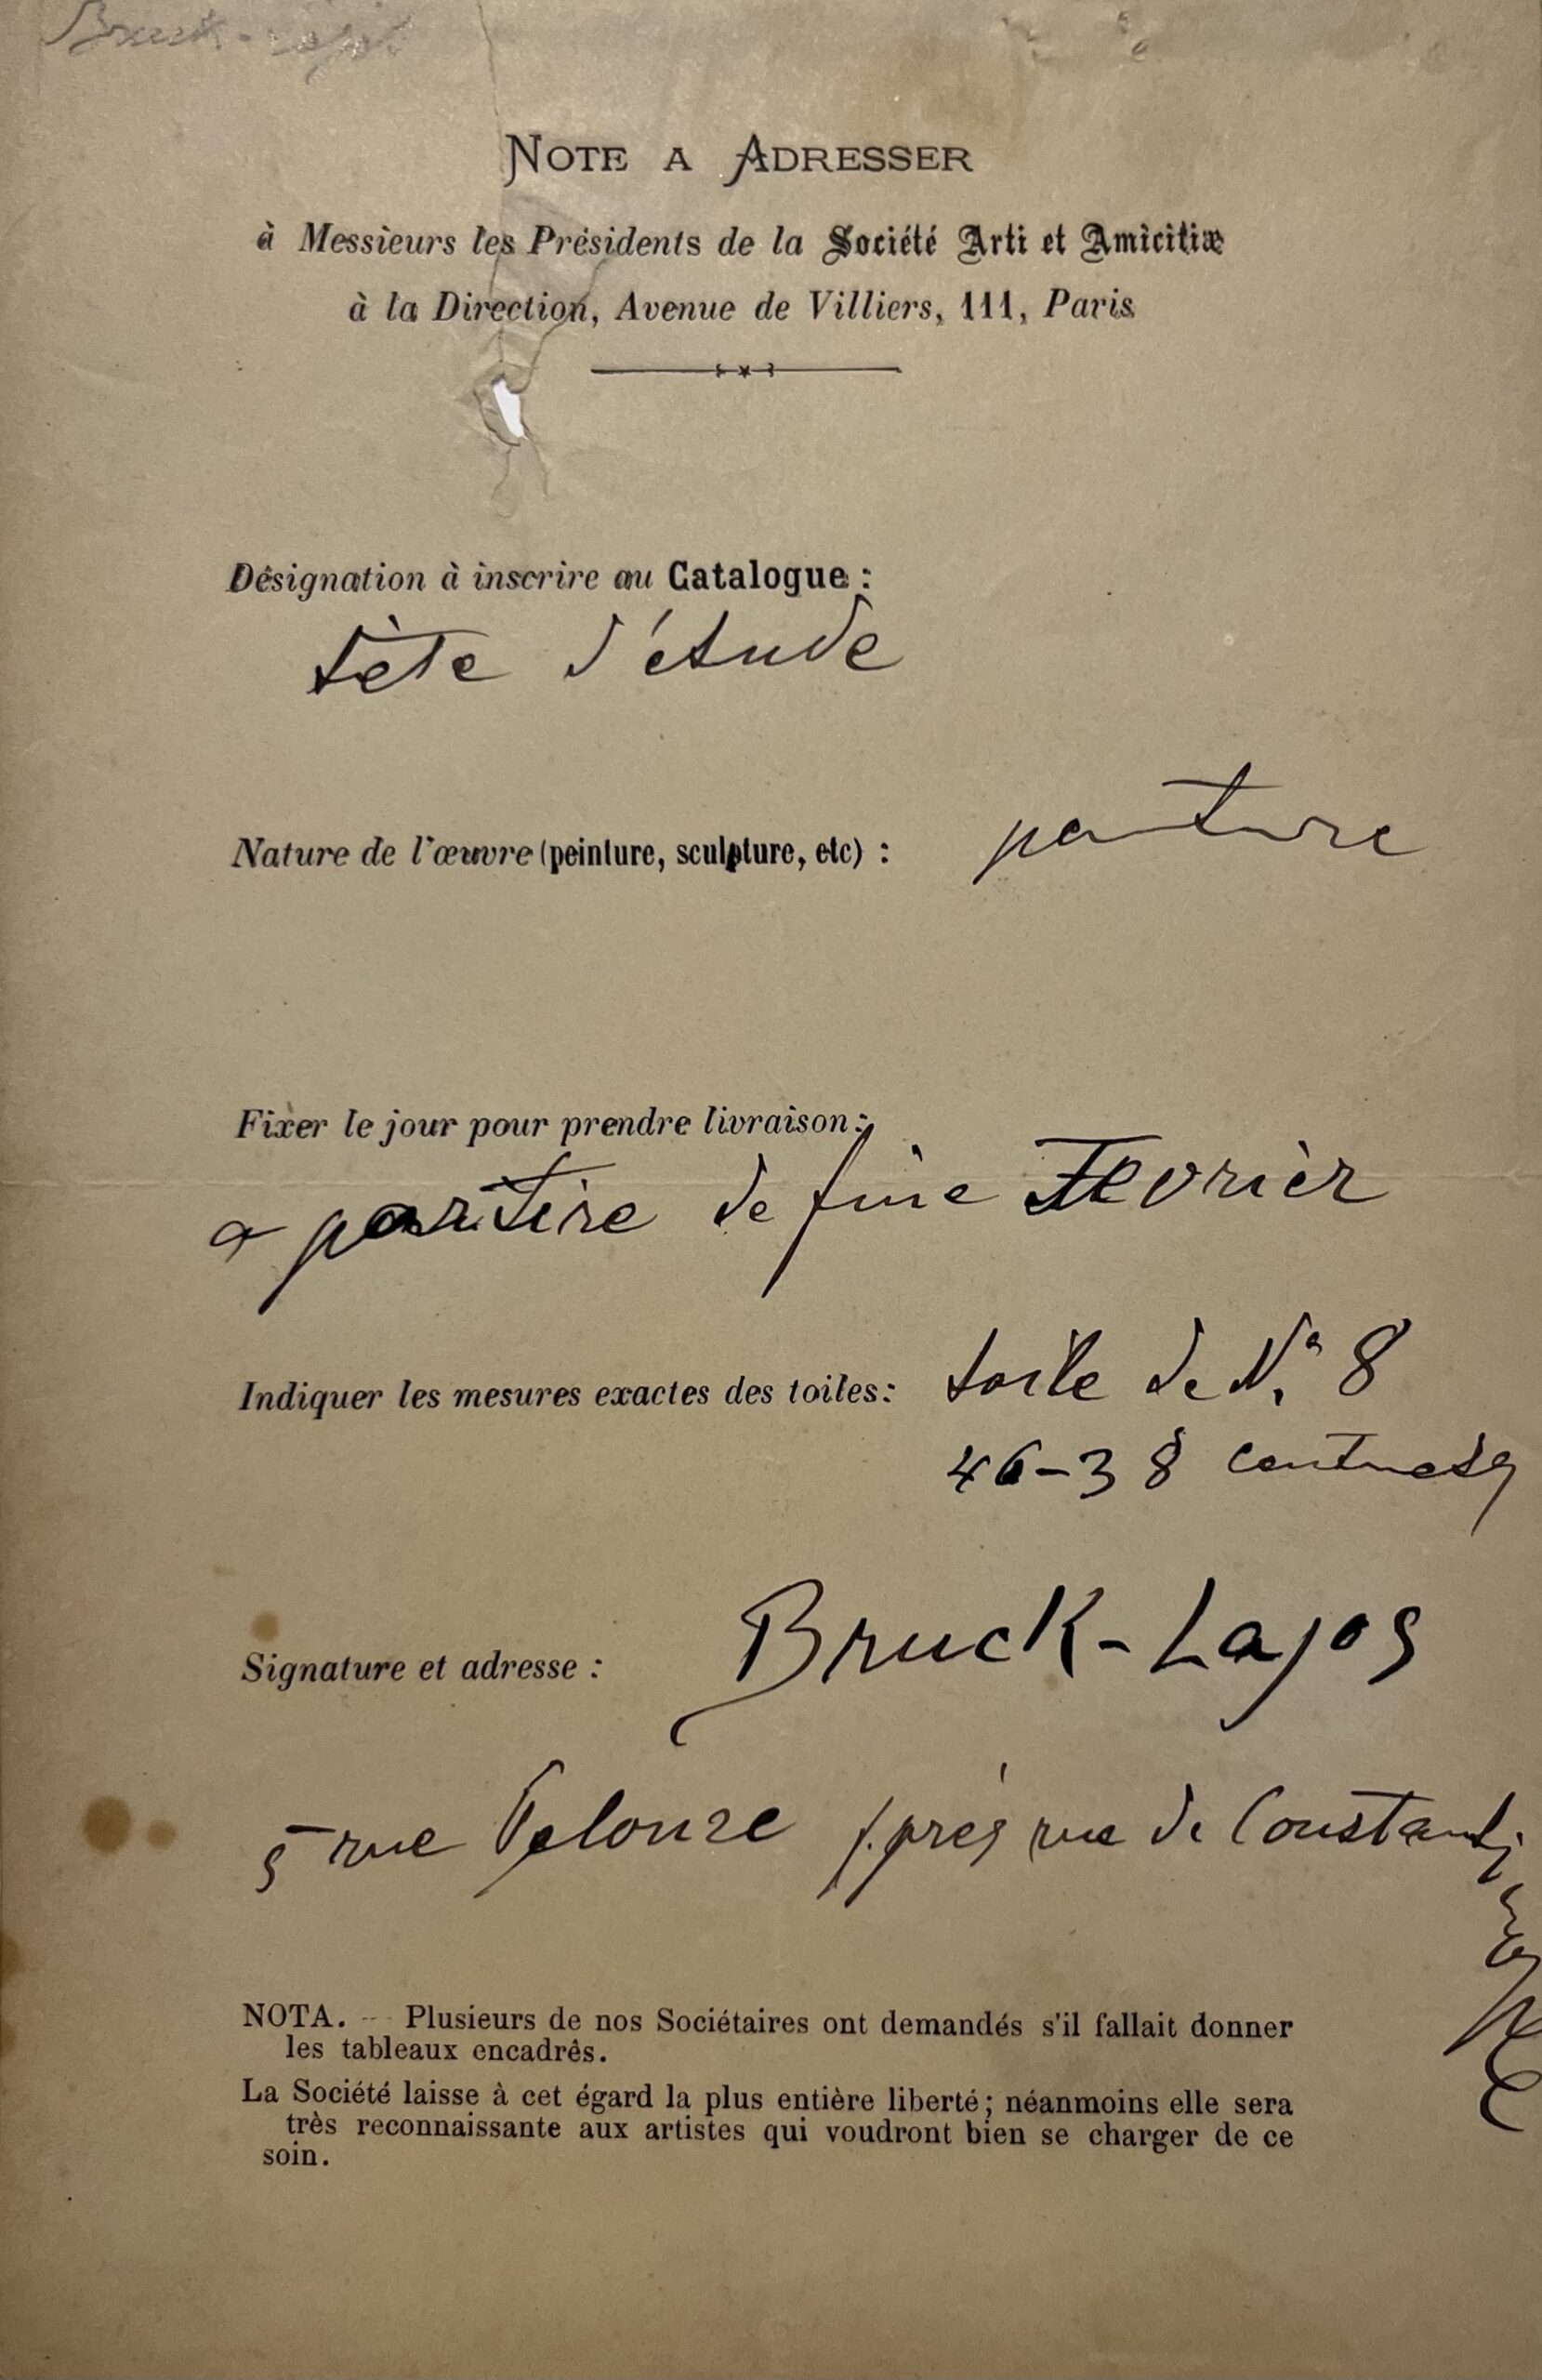 Bruck-Lajos
NOTE A ADRESSER
à Messieurs les Présidents de la Société Arti et Amicitiæ
à la Direction, Avenue de Villiers, 111, Paris
Désignation à inscrire au Catalogue :
tète d'étude
Nature de l'œuvre (peinture, sculpture, etc) : penture
Fixer le jour pour prendre livraison :
a partire de fine Fevrièr
Indiquer les mesures exactes des toiles : toile de No. 8
46-38 centmets
Signature et adresse : Bruck-Lajos
5 rue Pelouze / près rue de Constantinople
NOTA. -- Plusieurs de nos Sociétaires ont demandés s'il fallait donner
les tableaux encadrés.
La Société laisse à cet égard la plus entière liberté ; néanmoins elle sera
très reconnaissante aux artistes qui voudront bien se charger de ce
soin.